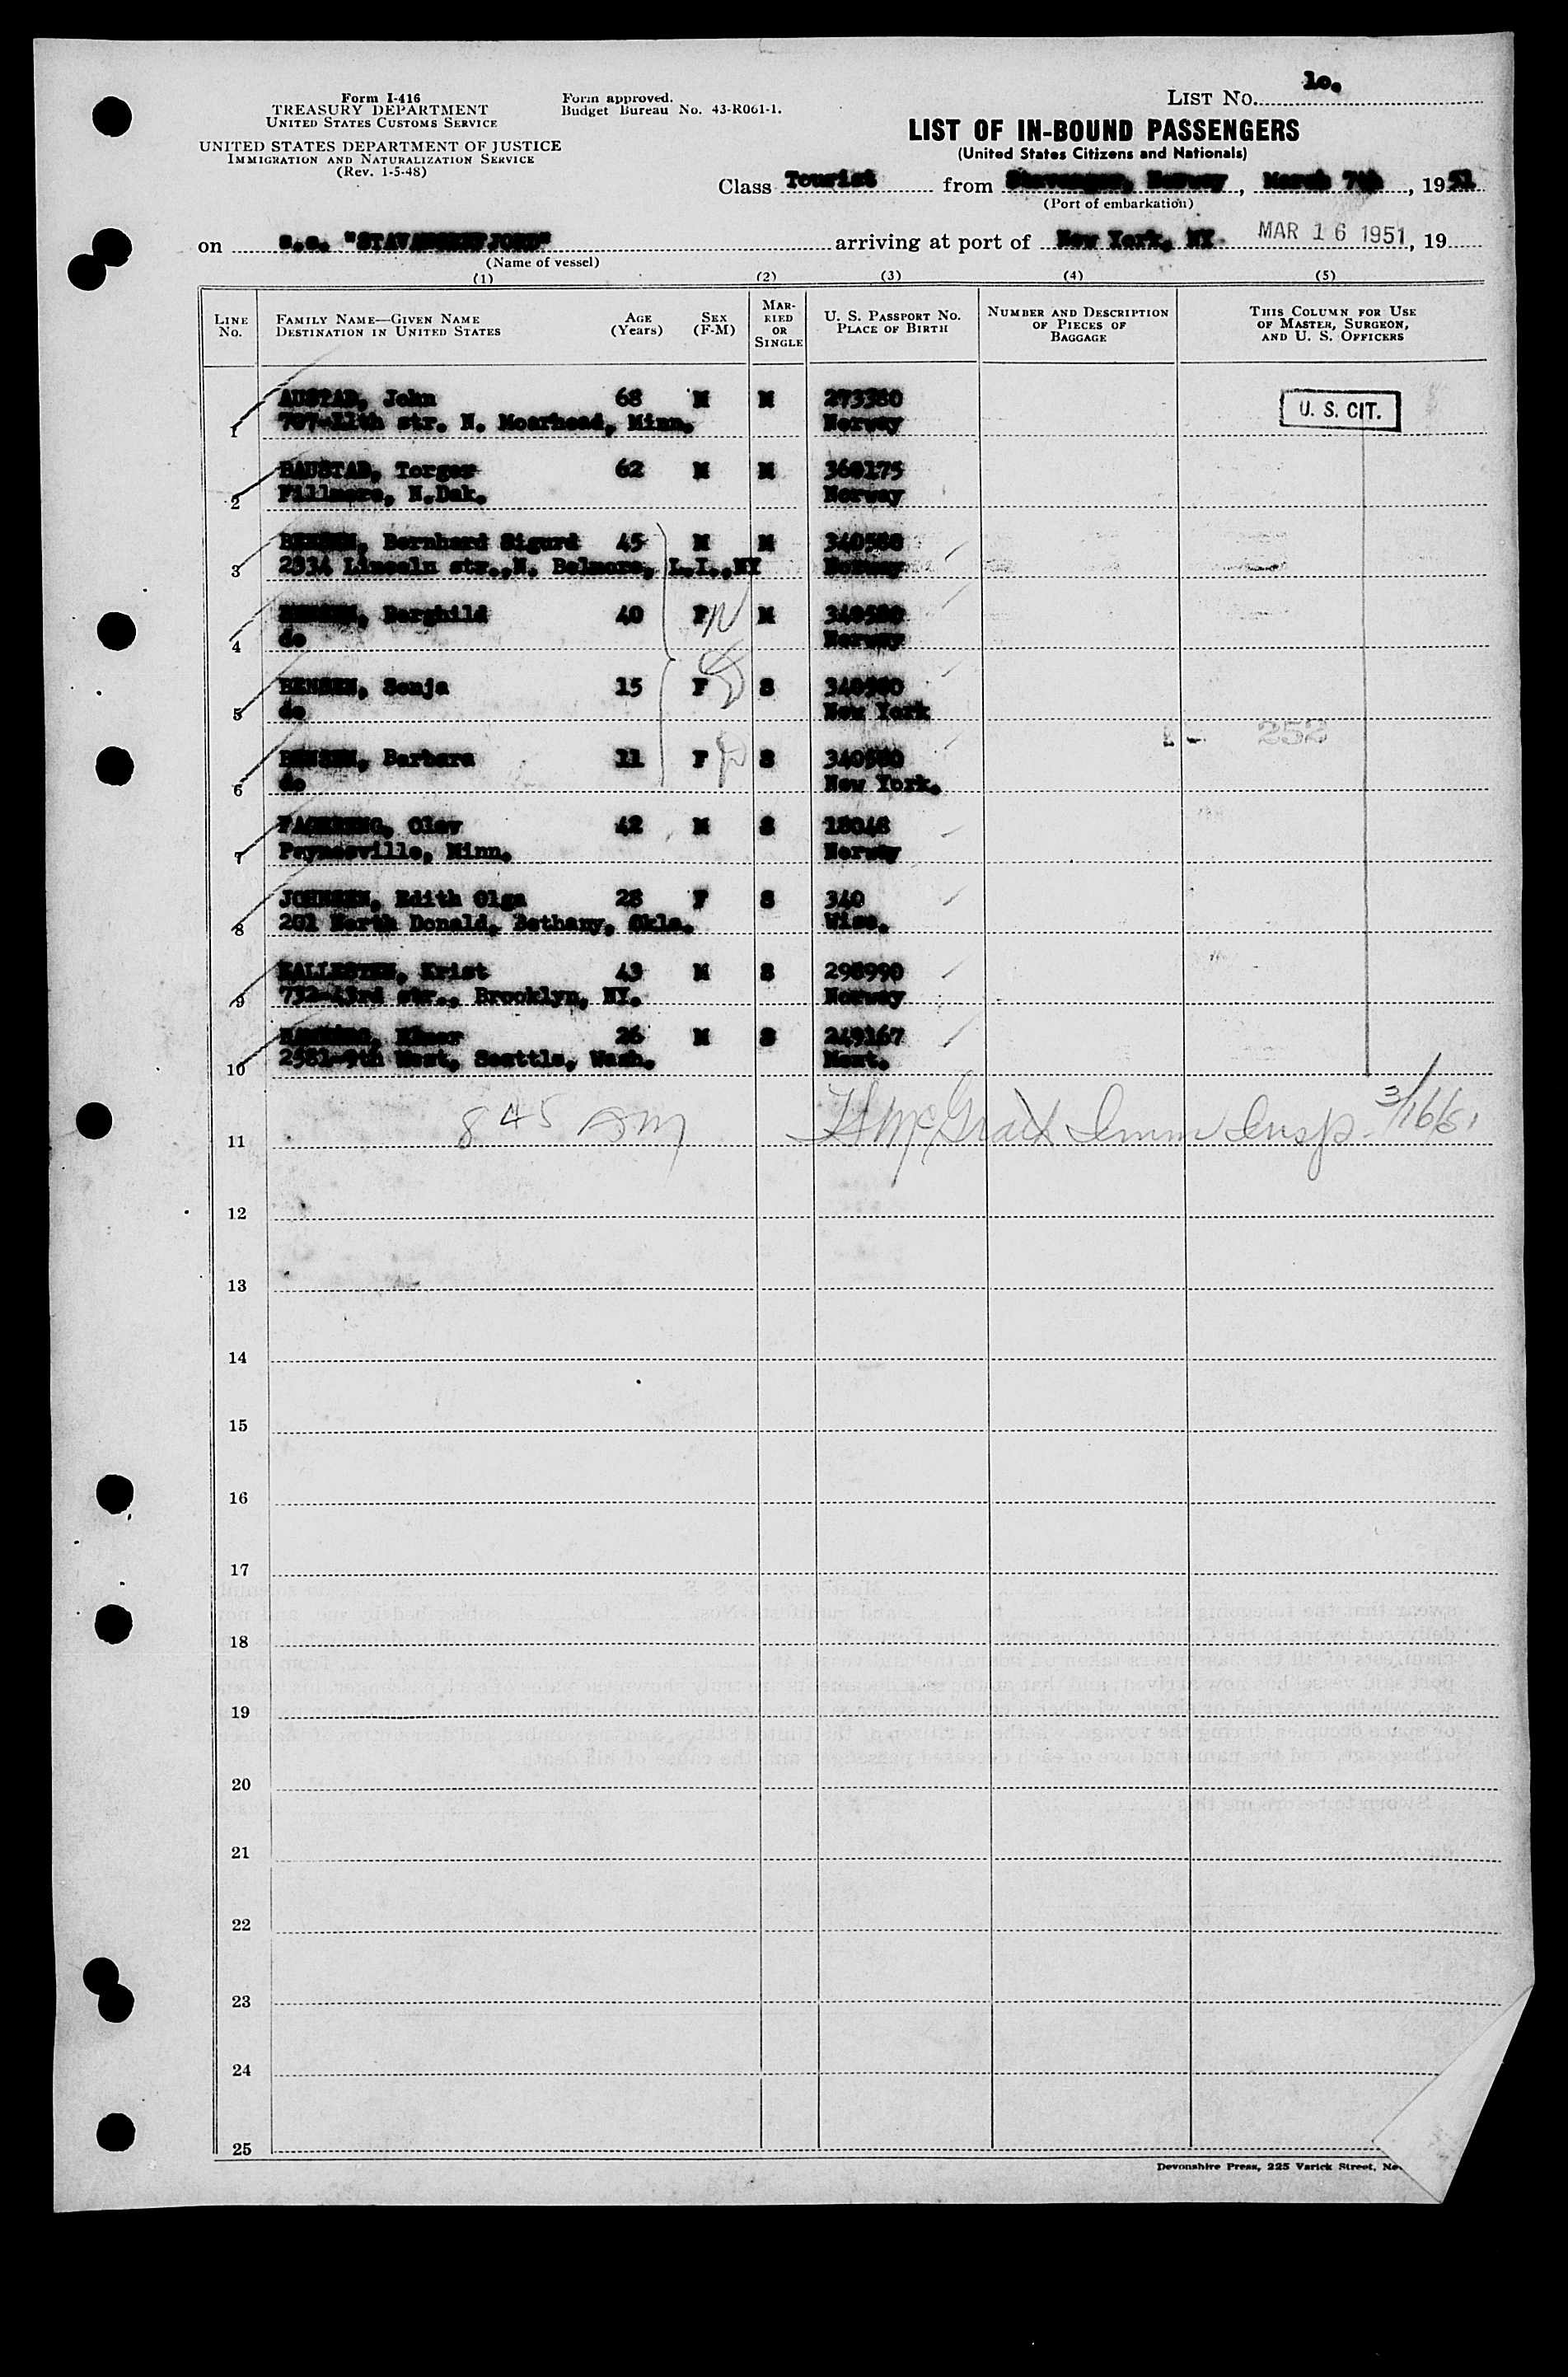 Form I-416
TREASURY DEPARTMENT
UNITED STATES CUSTOMS SERVICE
UNITED STATES DEPARTMENT OF JUSTICE
IMMIGRATION AND NATURALIZATION SERVICE
(Rev. 1-5-48)
Form approved.
Budget Bureau No. 43-R061-1.
LIST No. 10.
LIST OF IN-BOUND PASSENGERS
(United States Citizens and Nationals)
Class Tourist from Stavanger, Norway, March 7th, 1951
(Port of embarkation)
on s.s. "STAVANGERFJORD" arriving at port of New York, NY. MAR 16 1951, 19
(Name of vessel)
(1) (2) (3) (4) (5)
LINE No.
FAMILY NAME—GIVEN NAME
DESTINATION IN UNITED STATES
AGE (Years)
SEX (F-M)
MARRIED OR SINGLE
U. S. PASSPORT No.
PLACE OF BIRTH
NUMBER AND DESCRIPTION OF PIECES OF BAGGAGE
THIS COLUMN FOR USE OF MASTER, SURGEON, AND U. S. OFFICERS
AUSTAD, John 68 M M 273380 U. S. CIT.
1 707-11th str. N. Moorhead, Minn. Norway
BAUSTAD, Torger 62 M M 360175
2 Fillmore, N.Dak. Norway
BENSEN, Bernhard Sigurd 45 M M 340580
3 2334 Lincoln str., N. Belmore, L.I., NY Norway
BENSEN, Borghild 40 F M 340580
4 do Norway
BENSEN, Sonja 15 F S 340580
5 do New York
252
BENSEN, Barbara 11 F S 340580
6 do New York.
Olav 42 M S 18048
7 Paynesville, Minn. Norway
JOHNSEN, Edith Olga 28 F S 340
8 201 North Donald, Bethany, Okla. Wisc.
Krist 43 M S 298990
9 732-43rd str., Brooklyn, NY. Norway
26 M S 249167
10 9th West, Seattle, Wash. Mont.
8 45 AM McGrath Imm Insp. 3/16/51
11
12
13
14
15
16
17
18
19
20
21
22
23
24
25
Devonshire Press, 225 Varick Street,